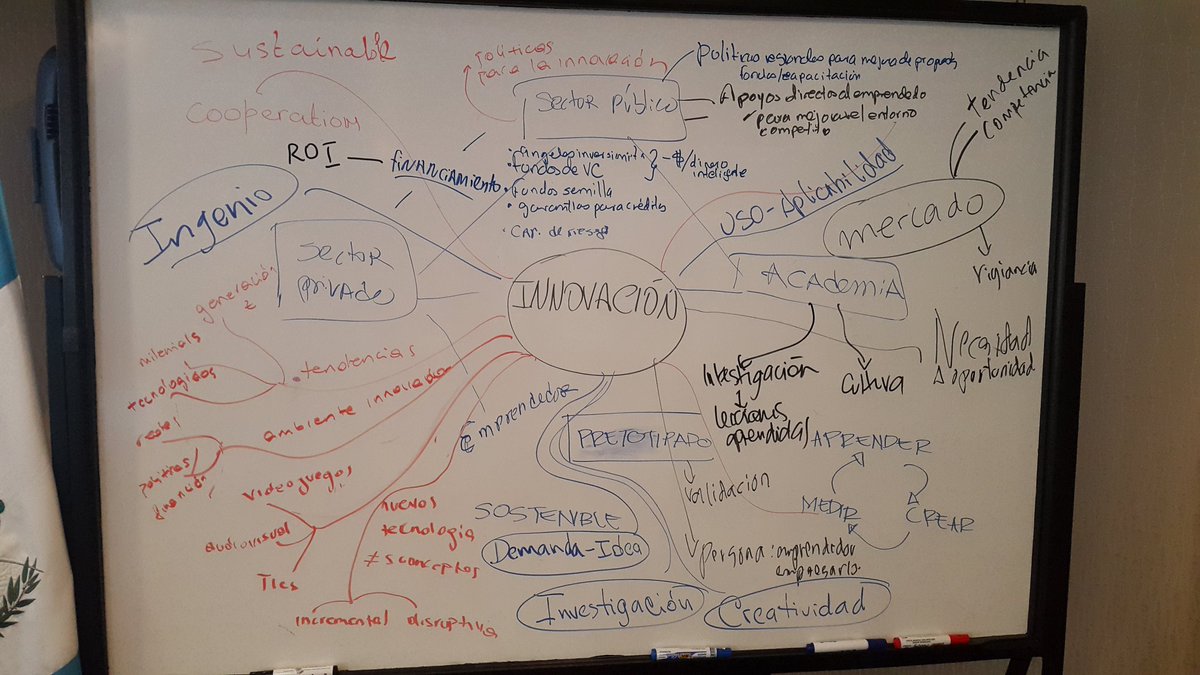 Sustainable
Cooperation
Políticas
para la innovación
Sector Público
Politicas regionales para mejora de
fondos/capacitación
Apoyos directos al emprendedo
para mejorar el entorno
tendencia
competencia
ROI
financiamiento
fondos de VC
fondos semilla
garantias para créditos
$/dinero
inteligente
Uso-Aplicabilidad
mercado
vigiancia
Ingenio
Sector
privado
INNOVACIÓN
ACADEMIA
generación
Z
milenials
tecnologicos
redes
tendencias
ambiente innovador
politicas
Investigación
lecciones
aprendidas
Cultura
Necesidad
oportunidad
Emprendedor
PRETOTIPADO
validación
Persona: emprendedor
empresario
APRENDER
MEDIR
CREAR
videojuegos
audiovisual
TICs
nuevos
tecnologia
≠s conceptos
incremental disruptiva
SOSTENIBLE
Demanda-Idea
Investigación
Creatividad